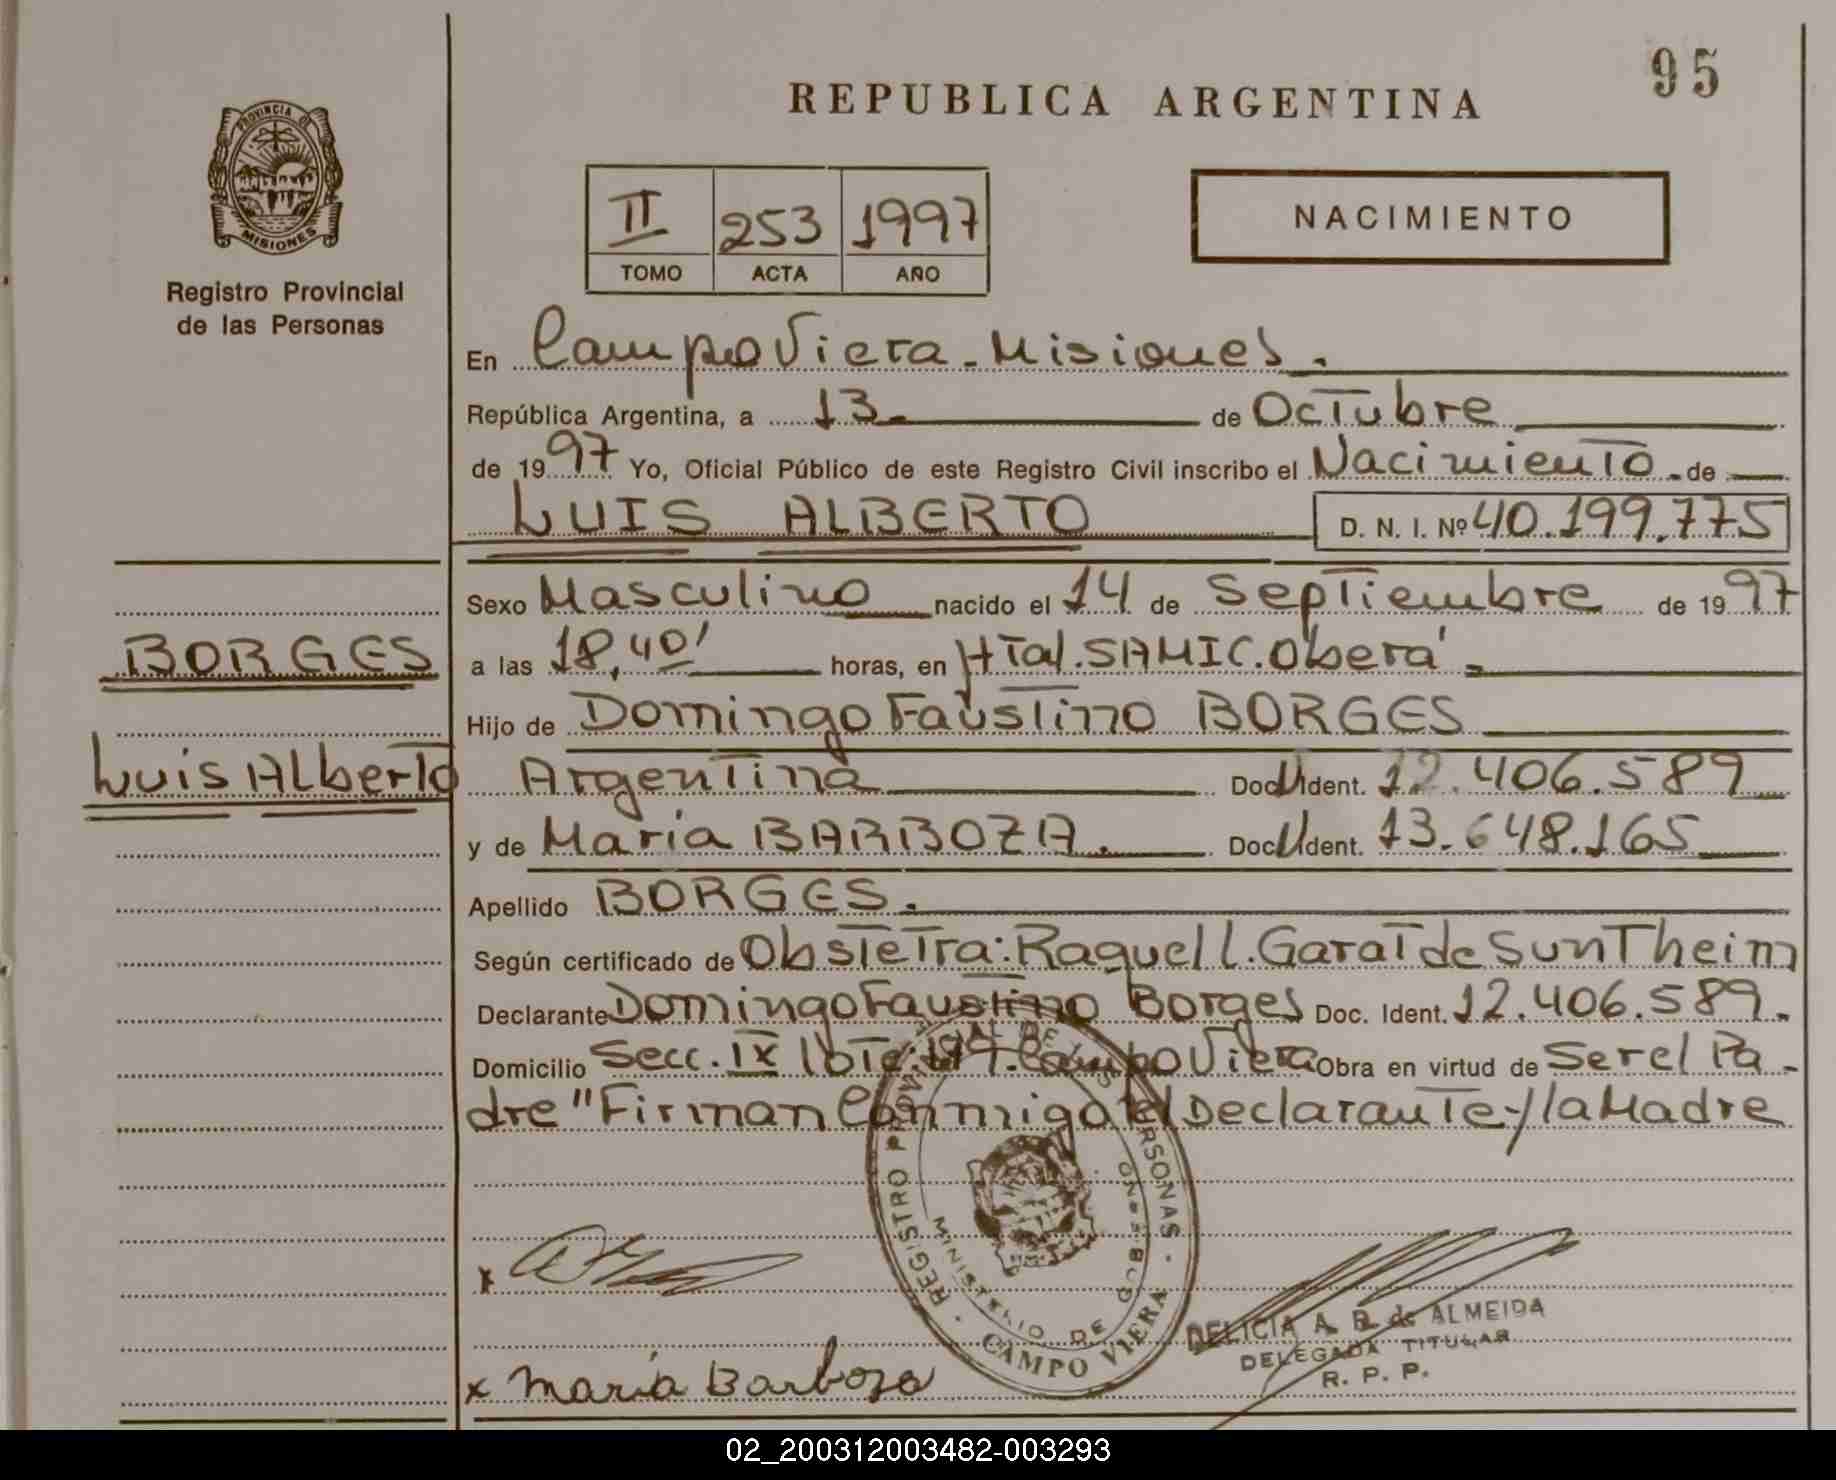 95
REPUBLICA ARGENTINA
PROVINCIA DE
MISIONES
Registro Provincial
de las Personas
II 253 1997
TOMO ACTA AÑO
NACIMIENTO
En Campo Viera - Misiones.
República Argentina, a 13 de Octubre
de 1997 Yo, Oficial Público de este Registro Civil inscribo el Nacimiento de
LUIS ALBERTO D. N. I. Nº 40.199.775
Sexo Masculino nacido el 14 de Septiembre de 1997
BORGES
a las 18,40' horas, en HTal. SAMIC. Oberá
Hijo de Domingo Faustino BORGES
Luis Alberto
Argentina Doc. Ident. 12.406.589
y de María BARBOZA. Doc. Ident. 13.648.165
Apellido BORGES.
Según certificado de Obstetra: Raquel L. Garat de Suntheim
Declarante Domingo Faustino Borges Doc. Ident. 12.406.589.
Domicilio Secc. IX lote: Campo Viera Obra en virtud de Ser el Pa-
dre "Firman Conmigo el Declarante y la Madre
REGISTRO PROVINCIAL DE LAS PERSONAS
MINISTERIO DE GOBIERNO
CAMPO VIERA
x
DELICIA A. R. de ALMEIDA
DELEGADA TITULAR
R. P. P.
x María Barboza
02_200312003482-003293